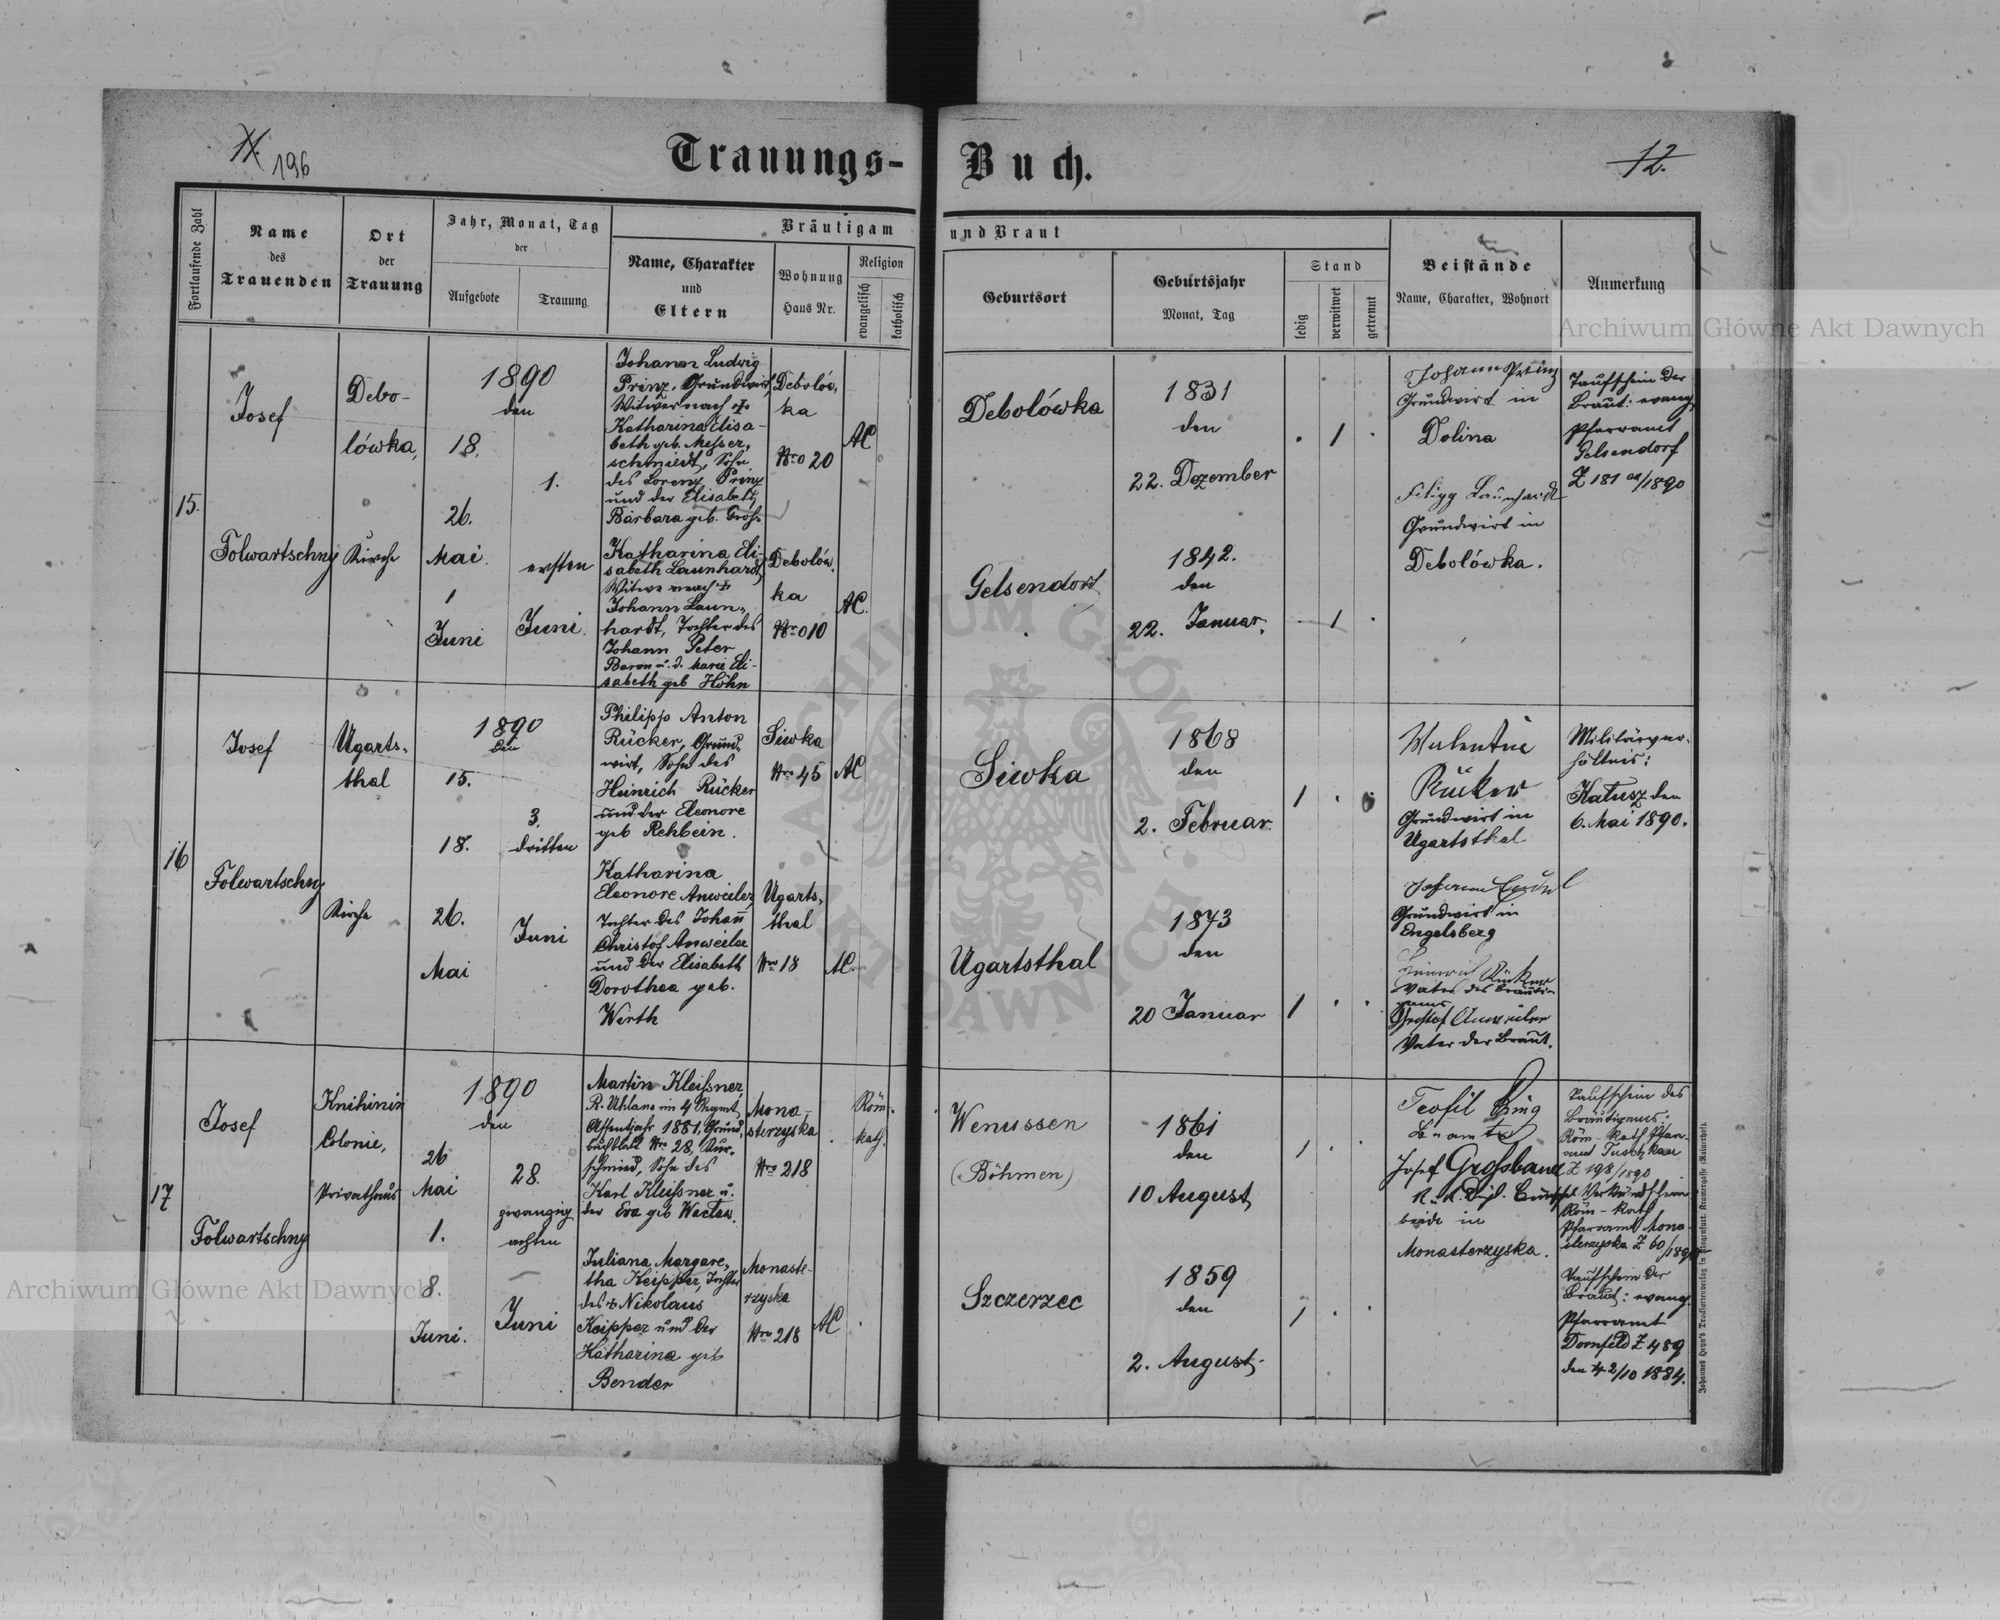 196
Trauungs-Buch.
12.
Fortlaufende Zahl
Name
des
Trauenden
Ort
der
Trauung
Jahr, Monat, Tag
der
Aufgebote
Trauung
Bräutigam und Braut
Name, Charakter
und
Eltern
Wohnung
Haus Nr.
Religion
evangelisch
katholisch
Geburtsort
Geburtsjahr
Monat, Tag
Stand
ledig
verwitwet
getrennt
Beistände
Name, Charakter, Wohnort
Anmerkung
15.
Josef
Folwartschny
Debo-
lówka,
Kirche
1890
den
18.
26.
Mai.
1
Juni
1.
ersten
Juni.
Johann Ludwig
Prinz, Grundwirt,
Witwer nach +
Katharina Elisa-
beth geb. Messer,
schmiedt, Sohn
des Lorenz Prinz
und der Elisabeth
Barbara geb. Groß.
Debolów,
ka
Nro 20
AC
Debolówka
1831
den
22. Dezember
1
Johann Prinz
Grundwirt in
Dolina
Filipp Launhardt
Grundwirt in
Debolówka.
Taufschein der
Braut: evang.
Pfarramt
Gelsendorf
Z 181 /1890
Katharina Eli-
sabeth Launhardt,
Witwe nach +
Johann Laun-
hardt, Tochter des
Johann Peter
Baron u. d. Marie Eli-
sabeth geb Höhn
Debolów.
ka
Nro 10
AC.
Gelsendorf
1842.
den
22. Januar.
1
16
Josef
Folwartschny
Ugarts-
thal
Kirche
1890
den
15.
18.
26.
Mai
3.
dritten
Juni
Philipp Anton
Rücker, Grund-
wirt, Sohn des
Heinrich Rücker
und der Eleonore
geb Rehbein.
Siwka
Nro 45
AC
Siwka
1868
den
2. Februar.
1
Valentin
Rücker
Grundwirt in
Ugartsthal
Johann
Grundwirt in
Engelsberg
Heinrich Rücker
Vater des Bräuti-
gams
Christof Anweiler
Vater der Braut.
Militärver-
hältnis:
Kałusz den
6. Mai 1890.
Katharina
Eleonore Anweiler,
Tochter des Johann
Christof Anweiler
und der Elisabeth
Dorothea geb.
Wirth
Ugarts-
thal
Nro 18
AC.
Ugartsthal
1873
den
20 Januar
1
17
Josef
Folwartschny
Knihinin
Colonie,
Privathaus
1890
den
26
Mai
1.
8.
Juni.
28.
zwanzig
achten
Juni
Martin Kleißner,
R. Uhlane im 4 Regmt,
Assentjahr 1881, Grund-
buchblatt Nro 28,
schmied, Sohn des
Karl Kleißner u.
der Eva geb Waclaw.
Mona-
sterzyska
Nro 218
Röm.
kath.
Wenussen
(Böhmen)
1861
den
10 August
1
Teofil
Beamte
Josef Großbauer
beide in
Monasterzyska.
Taufschein des
Bräutigams:
Röm-Kath Pfarr-
amt Tuschkau
Z 198/1890
Verkündschein
Röm-Kath
Pfarramt Mona-
sterzyska Z 60/1890
Juliana Margare-
tha Keipper, Tochter
des + Nikolaus
Keipper und der
Katharina geb
Bender
Monaste-
rzyska
Nro 218
AC
Szczerzec
1859
den
2. August.
1
Taufschein der
Braut: evang.
Pfarramt
Dornfeld Z 489
den 2/10 1884.
Archiwum Główne Akt Dawnych
Archiwum Główne Akt Dawnych
ARCHIWUM GŁÓWNE AKT DAWNYCH